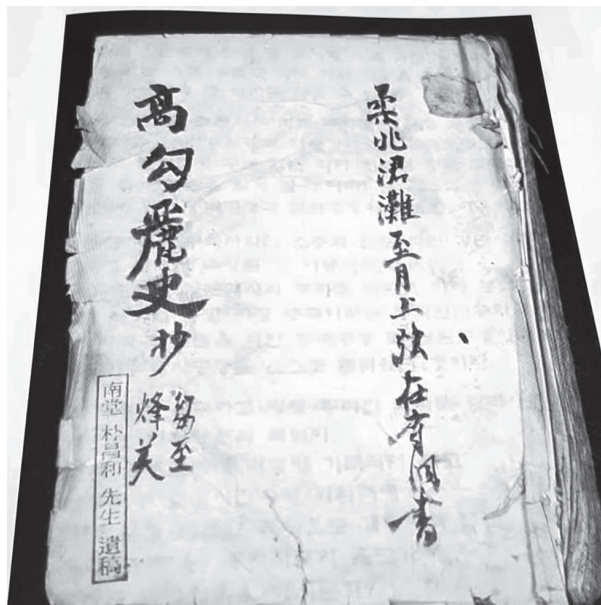 柔兆涒灘至月上弦在書
高勾麗史抄
芻至
烽美
南堂 朴昌和 先生 遺稿